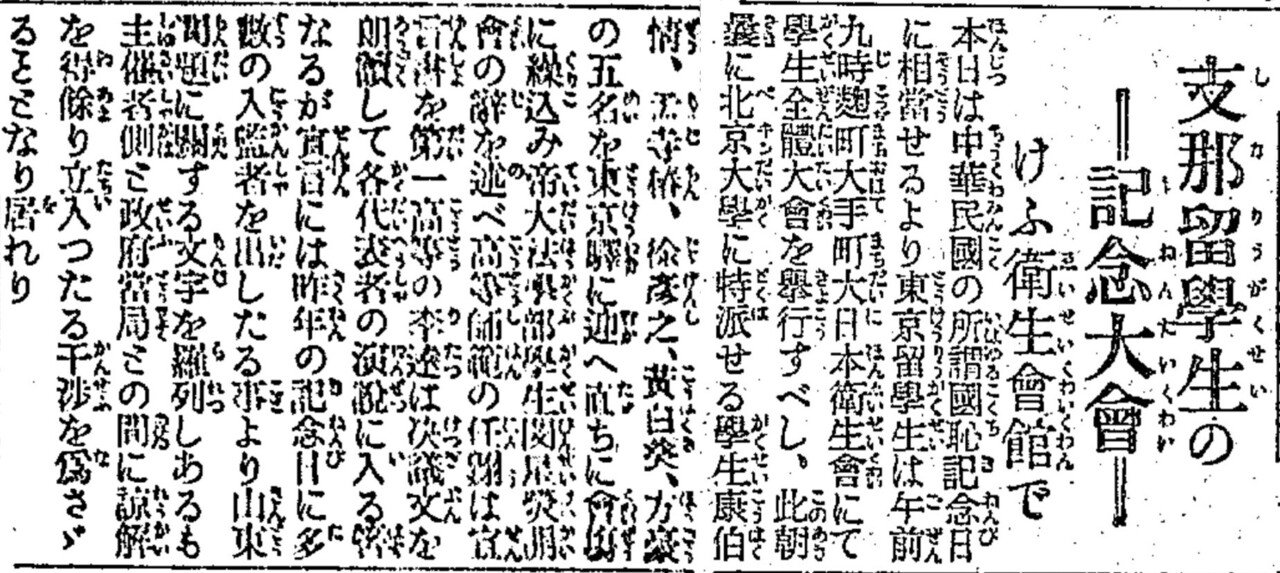 支那留學生の
記念大會
けふ衛生會館で
本日は中華民國の所謂國恥記念日
に相當せるより東京留學生は午前
九時麹町大手町大日本衛生會にて
學生全體大會を擧行すべし。此朝
曩に北京大學に特派せる學生康伯
情、孟壽椿、徐彦之、黃日葵、方豪
の五名を東京驛に迎へ直ちに會場
に繰込み帝大法學部學生閔星熒開
會の辭を述べ高等師範の任翔は宣
言書を第一高等の李達は决議文を
朗讀して各代表者の演說に入る筈
なるが宣言には昨年の記念日に多
數の入監者を出したる事より山東
問題に關する文字を羅列しあるも
主催者側と政府當局との間に諒解
を得餘り立入つたる干渉を爲さゞ
ることなり居れり